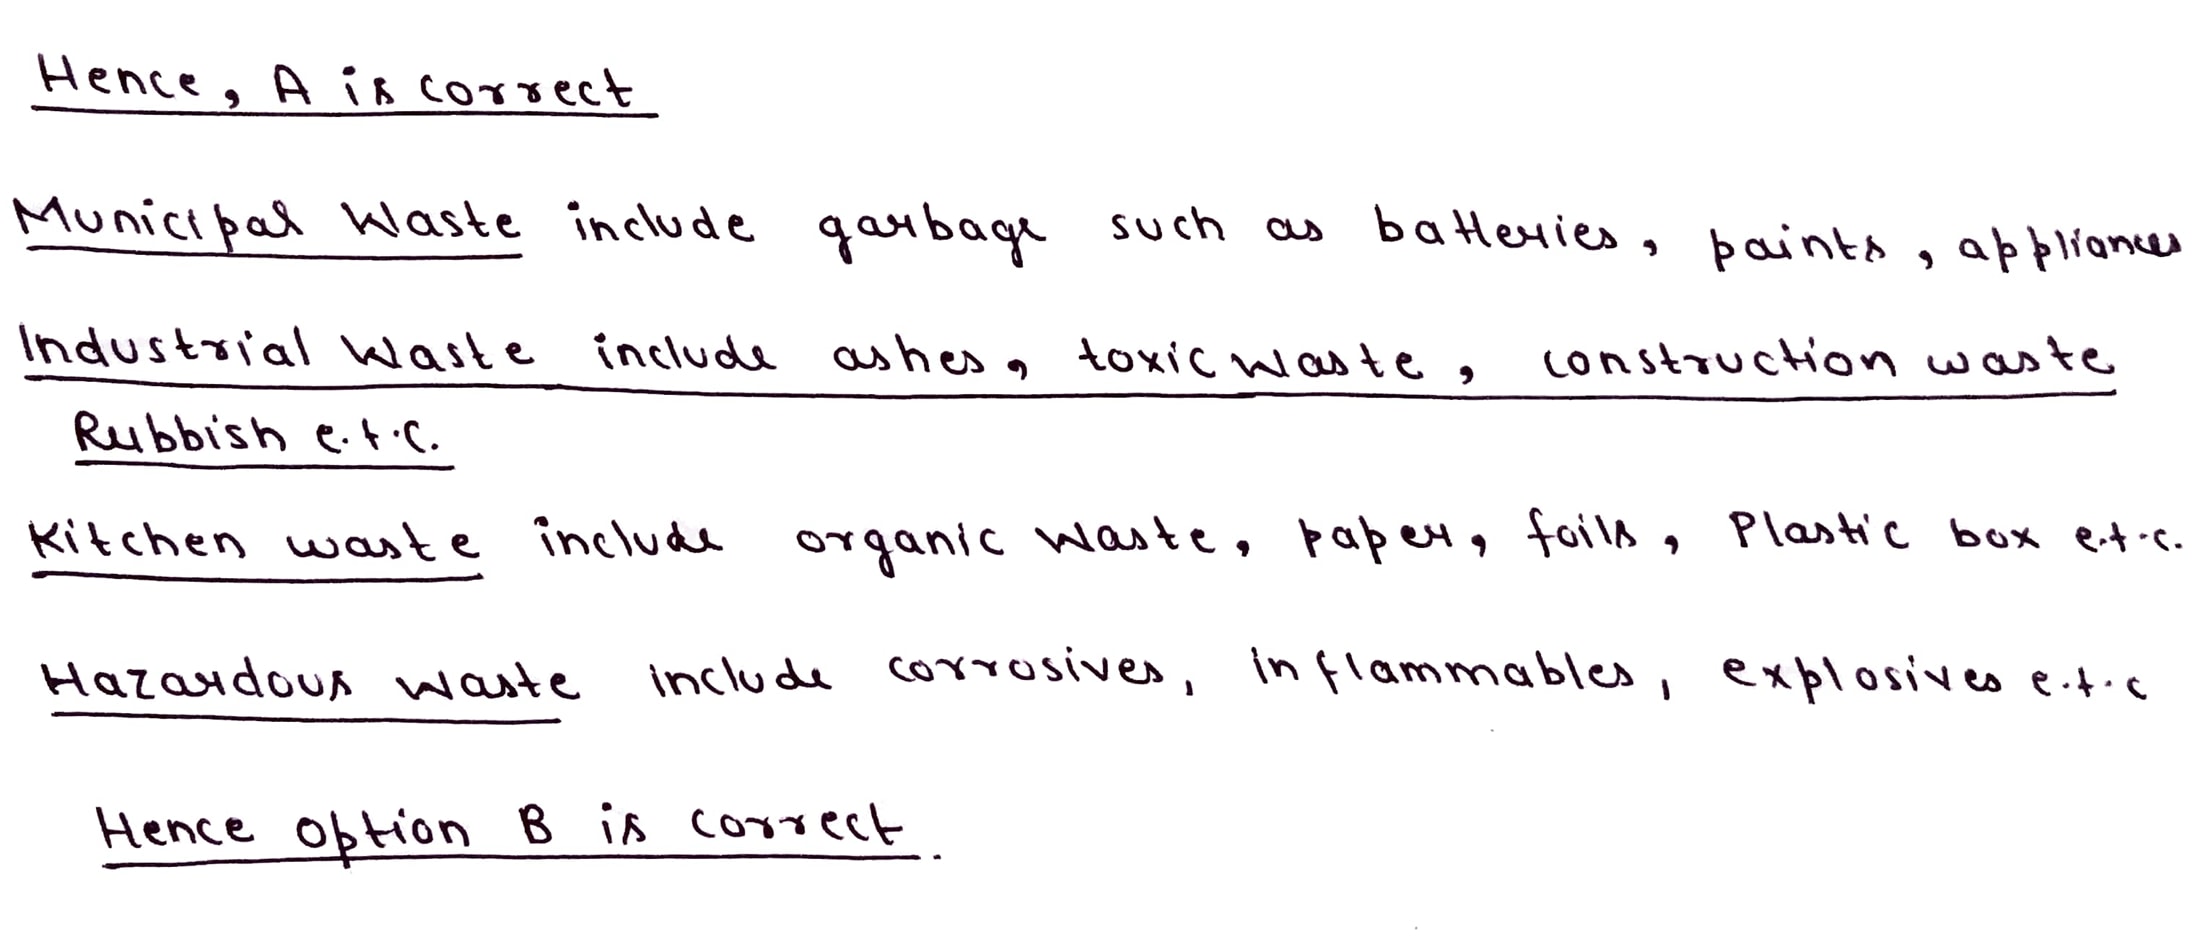 Hence, A is correct
Municipal Waste include garbage such as batteries, paints, appliances
Industrial Waste include ashes, toxic waste, construction waste
Rubbish e.t.c.
Kitchen waste include organic waste, paper, foils, Plastic box e.t.c.
Hazardous waste include corrosives, inflammables, explosives e.t.c
Hence option B is correct.